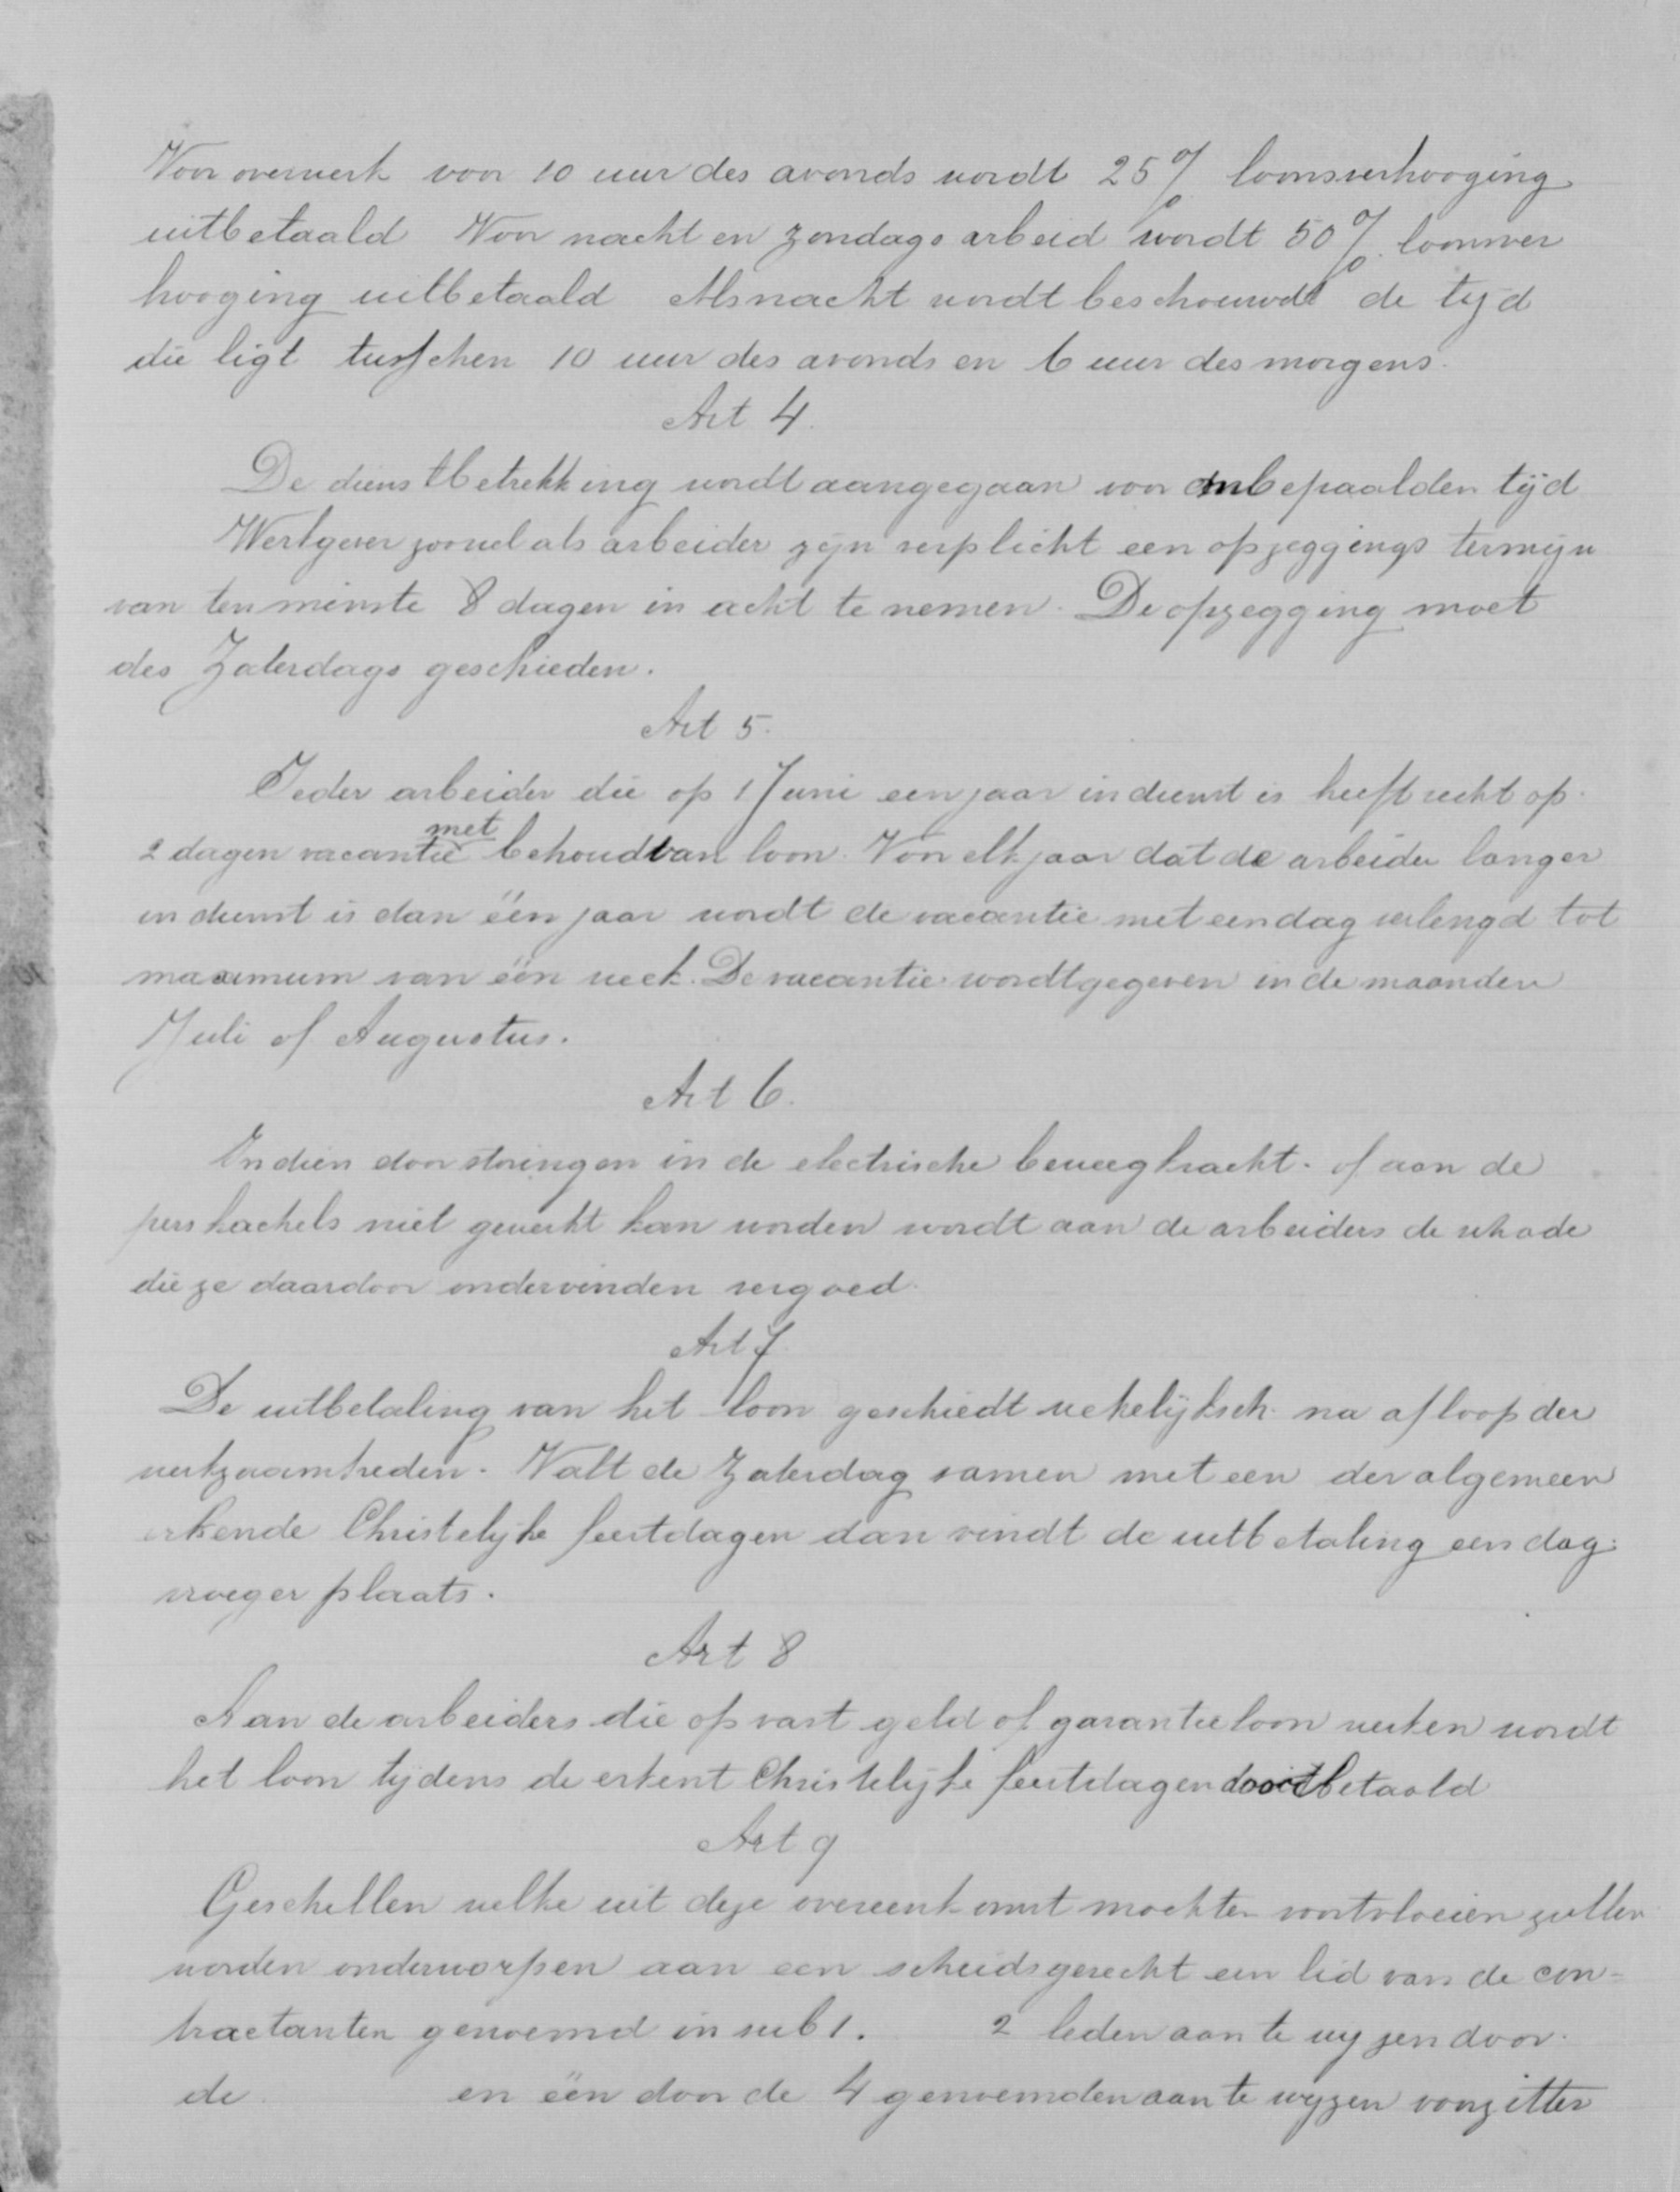 Voor overwerk voor 10 uur des avonds wordt 25% loonsverhooging
uitbetaald Voor nacht en Zondags arbeid wordt 50% loonsver
hooging uitbetaald Als nacht wordt beschouwdt de tijd
die ligt tusschen 10 uur des avonds en 6 uur des morgens.
Art 4.
De dienstbetrekking wordt aangegaan voor onbepaalden tijd
Werkgever zoowel als arbeider zijn verplicht een opzeggings termijn
van ten minste 8 dagen in acht te nemen. De opzegging moet
des Zaterdags geschieden.
Art 5.
Ieder arbeider die op 1 Juni een jaar in dienst is heeft recht op
2 dagen vacantie met behoud van loon. Voor elk jaar dat de arbeider langer
in dienst is dan één jaar wordt de vacantie met een dag verlengd tot
maximum van één week. De vacantie wordt gegeven in de maanden
Juli of Augustus.
Art 6.
Indien door storingen in de electrische beweegkracht of aan de
pers kachels niet gewerkt kan worden wordt aan de arbeiders de schade
die ze daardoor ondervinden vergoed.
Art 7
De uitbetaling van het loon geschiedt wekelijksch na afloop der
werkzaamheden. Valt de Zaterdag samen met een der algemeen
erkende Christelijke feestdagen dan vindt de uitbetaling een dag
vroeger plaats.
Art 8
Aan de arbeiders die op vast geld of garantieloon werken wordt
het loon tijdens de erkent Christelijke feestdagen betaald
Art 9
Geschillen welke uit deze overeenkomst mochten voortvloeien zullen
worden onderworpen aan een scheidsgerecht een lid van de con=
tractanten genoemd in sub 1. 2 leden aan te wijzen door
de en één door de 4 genoemden aan te wijzen voorzitter